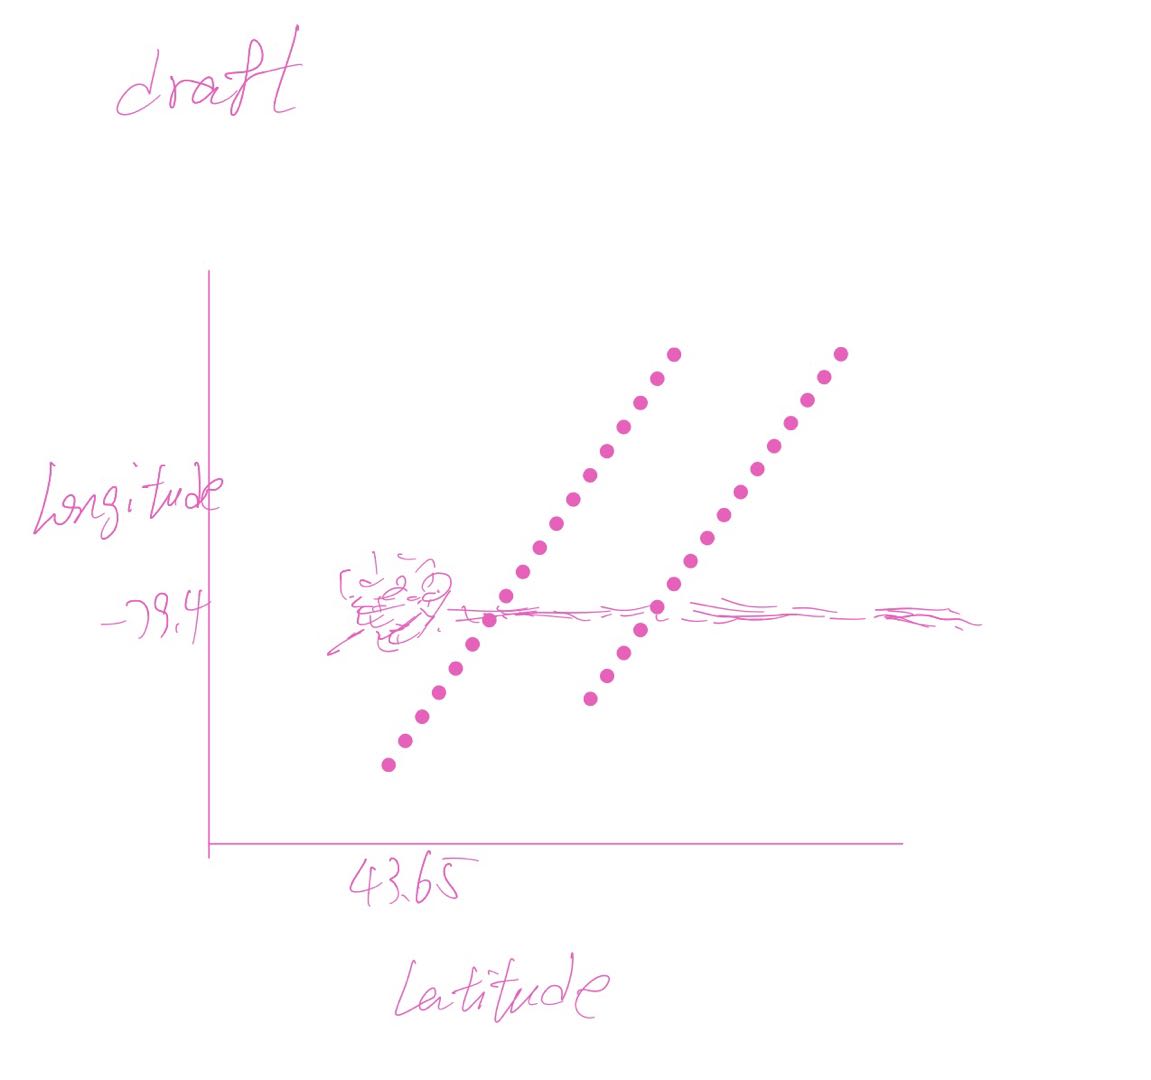 draft
Longitude
-79.4
43.65
Latitude